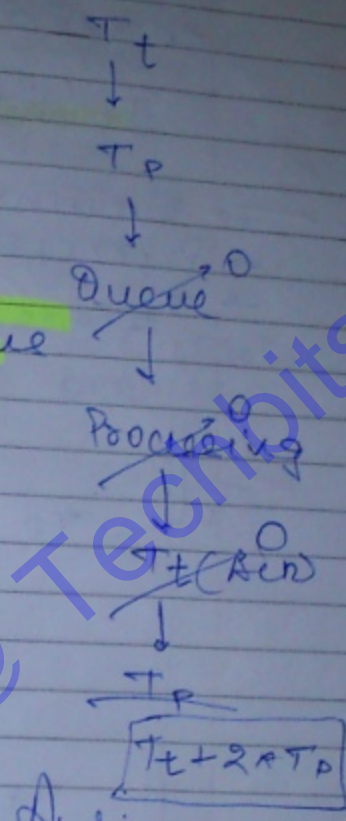 Tt
↓
Tp
↓
Queue 0
ue
↓
Processing 0
↓
Tt(Ack) 0
↓
Tp
Tt + 2*Tp
@ Techbits